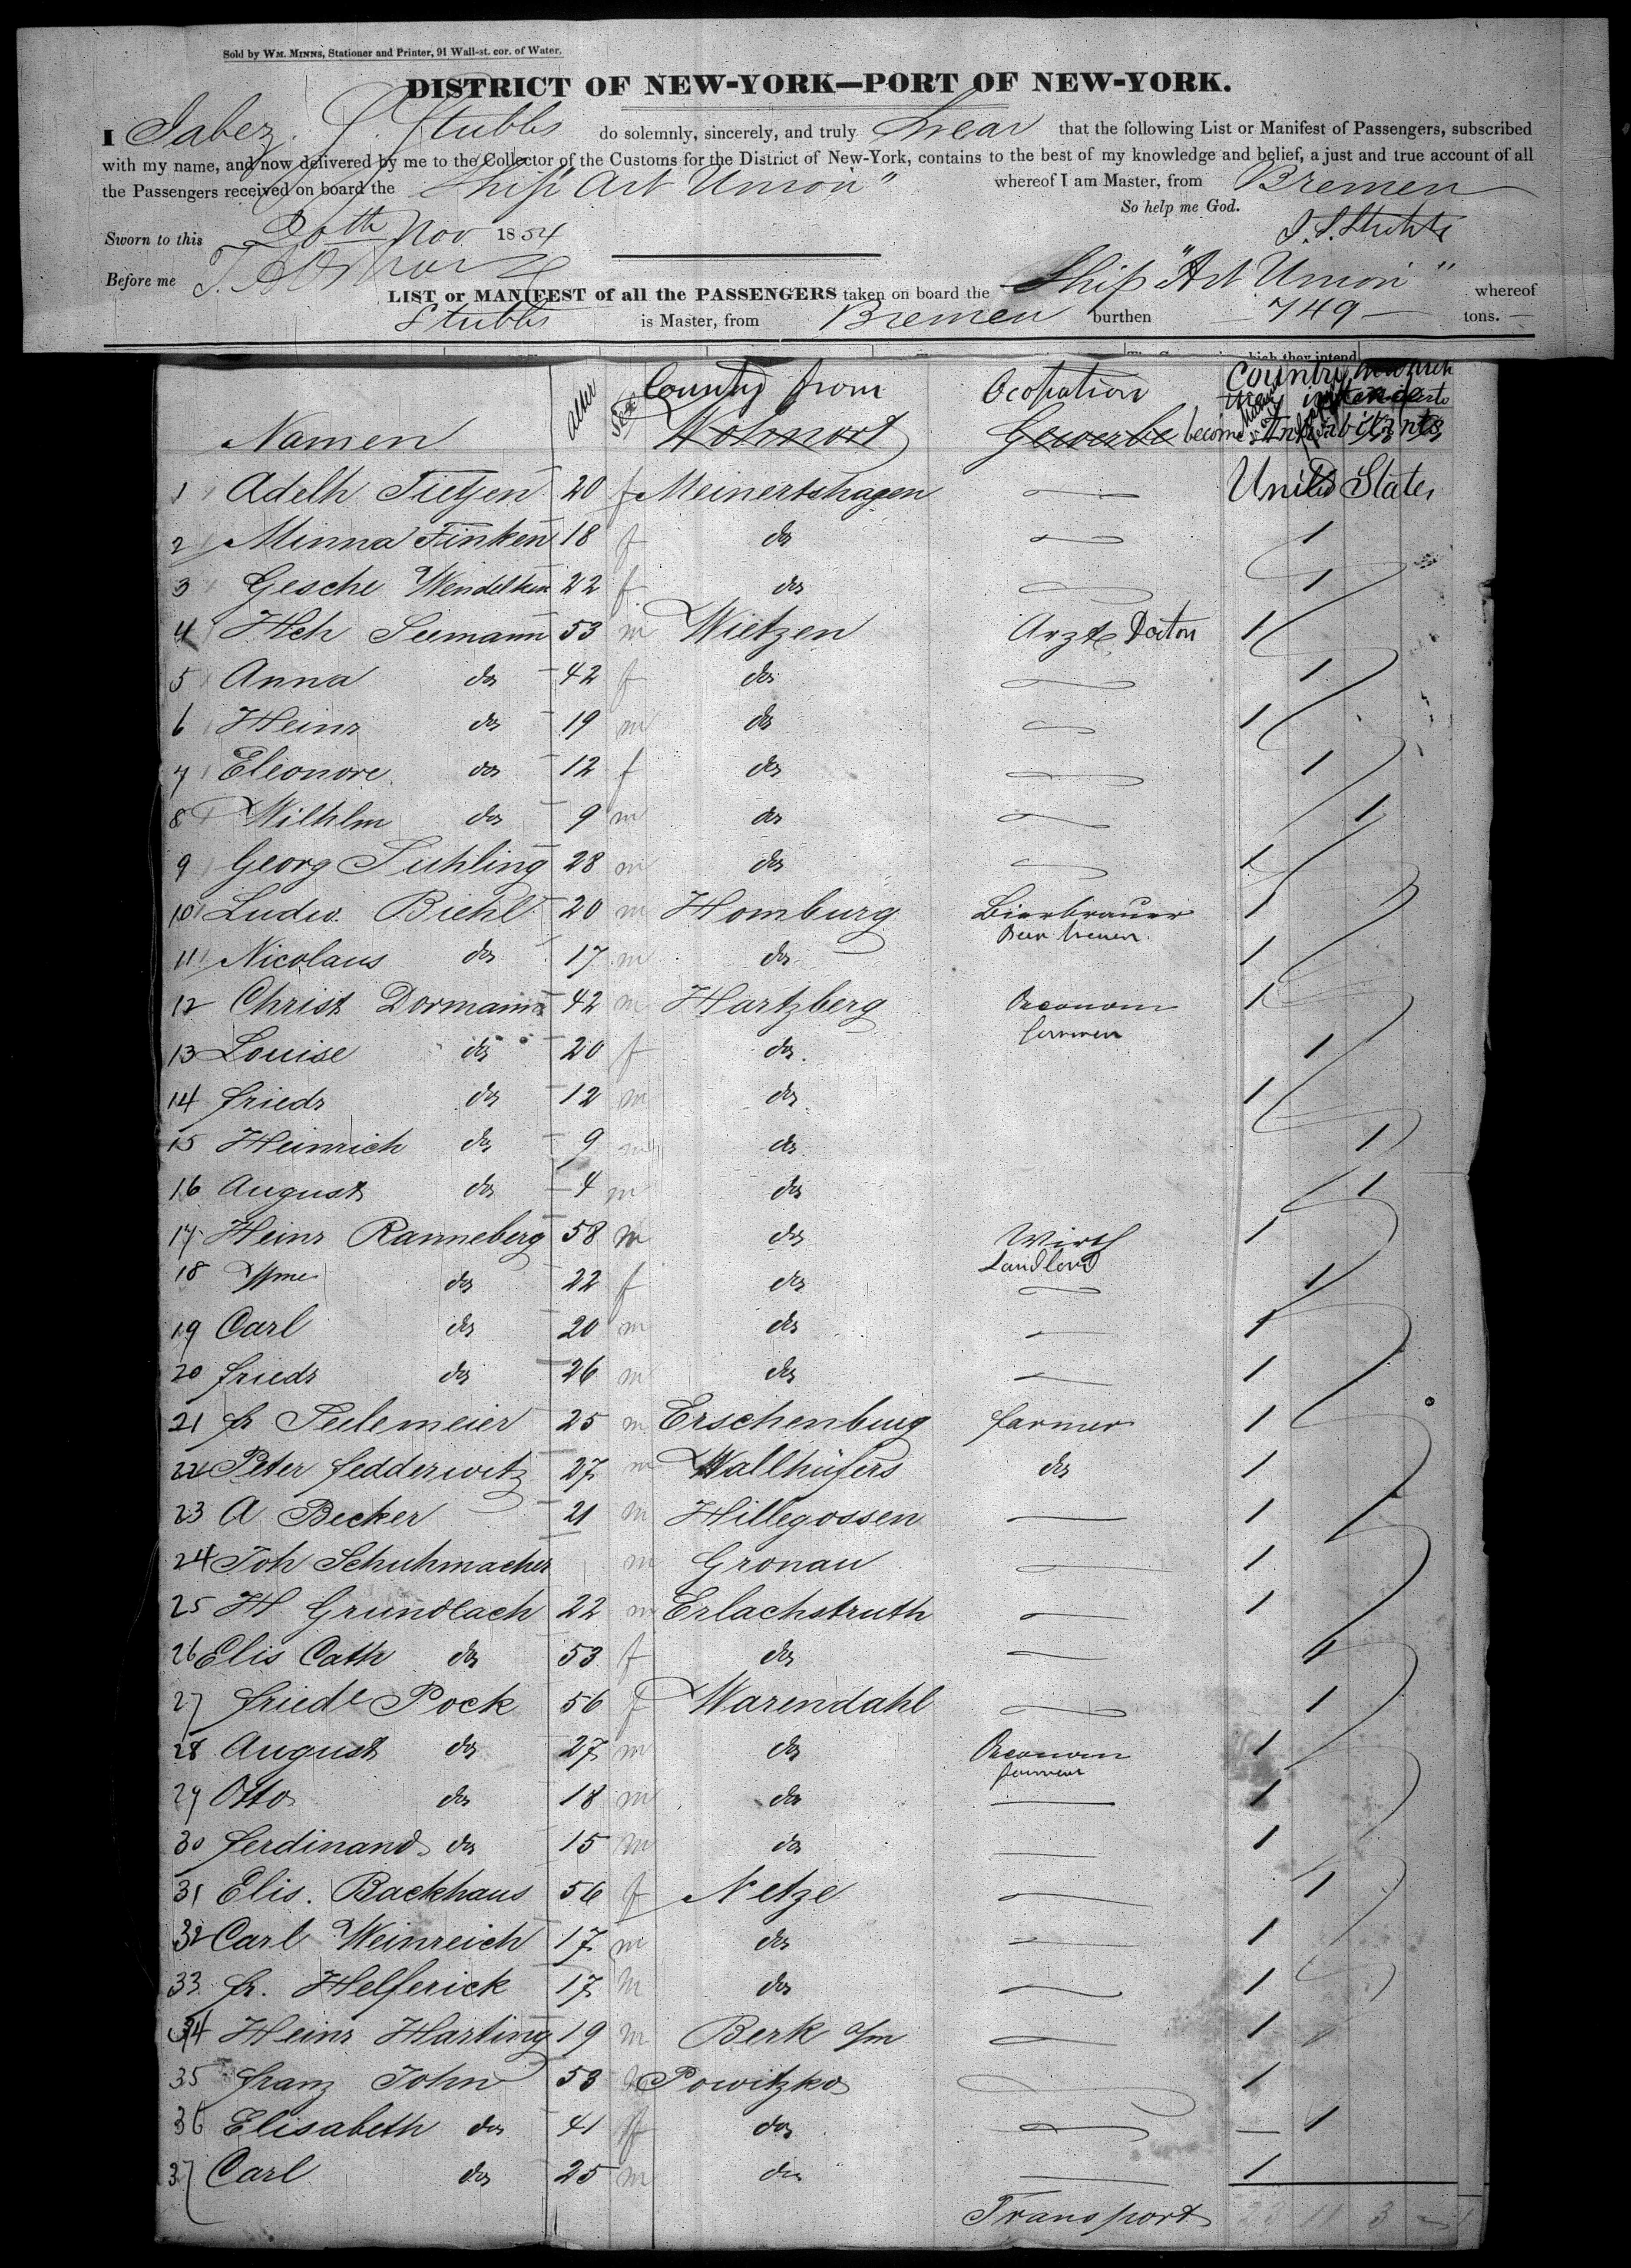 Sold by WM. MINNS, Stationer and Printer, 91 Wall-st. cor. of Water.
DISTRICT OF NEW-YORK—PORT OF NEW-YORK.
I Jabez S. Stubbs do solemnly, sincerely, and truly Swear that the following List or Manifest of Passengers, subscribed
with my name, and now delivered by me to the Collector of the Customs for the District of New-York, contains to the best of my knowledge and belief, a just and true account of all
the Passengers received on board the Ship "Art Union" whereof I am Master, from Bremen
So help me God.
Sworn to this 20th Nov 1854 J. S. Stubbs
Before me
LIST or MANIFEST of all the PASSENGERS taken on board the Ship "Art Union" whereof
Stubbs is Master, from Bremen burthen 749 tons.
which they intend
Namen Alter Sex Country from Ocopation Country
Wohnort Gewerbe become Inhabitants
1 Adelh Tietjen 20 f Meinertshagen — United States
2 Minna Finken 18 f do — 1
3 Gesche Wendelken 22 f do — 1
4 Hch Seemann 53 m Wietzen Arzt Docton 1
5 Anna do 42 f do — 1
6 Heinr do 19 m do — 1
7 Eleonore do 12 f do — 1
8 Wilhlm do 9 m do — 1
9 Georg Suhling 28 m do — 1
10 Ludw. Biehl 20 m Homburg Bierbrauer 1
Beer brewer
11 Nicolaus do 17 m do 1
12 Christ Dormann 42 m Hartzberg Oeconom 1
farmer
13 Louise do 20 f do 1
14 Friedr do 12 m do 1
15 Heinrich do 9 m do 1
16 August do 4 m do 1
17 Heinr Ranneberg 58 m do Wirth 1
Landlord
18 Wme do 22 f do — 1
19 Carl do 20 m do — 1
20 Friedr do 26 m do — 1
21 Fr Seelemeier 25 m Erschenburg farmer 1
22 Peter Fedderwitz 27 m Wallhüfers do 1
23 A Becker 21 m Hillegossen — 1
24 Joh Schuhmacher m Gronau — 1
25 H. Grundlach 22 m Erlachstruth — 1
26 Elis Cath do 53 f do — 1
27 Friede Pock 56 f Warendahl — 1
28 August do 27 m do Oeconom 1
farmer
29 Otto do 18 m do — 1
30 Ferdinand do 15 m do — 1
31 Elis. Backhaus 56 f Netze — 1
32 Carl Weinreich 17 m do — 1
33 Fr. Helferick 17 m do — 1
34 Heinr Harting 19 m Berk a/m — 1
35 Franz John 53 m Powitzko — 1
36 Elisabeth do 41 f do — 1
37 Carl do 25 m do — 1
Transport 23 11 3